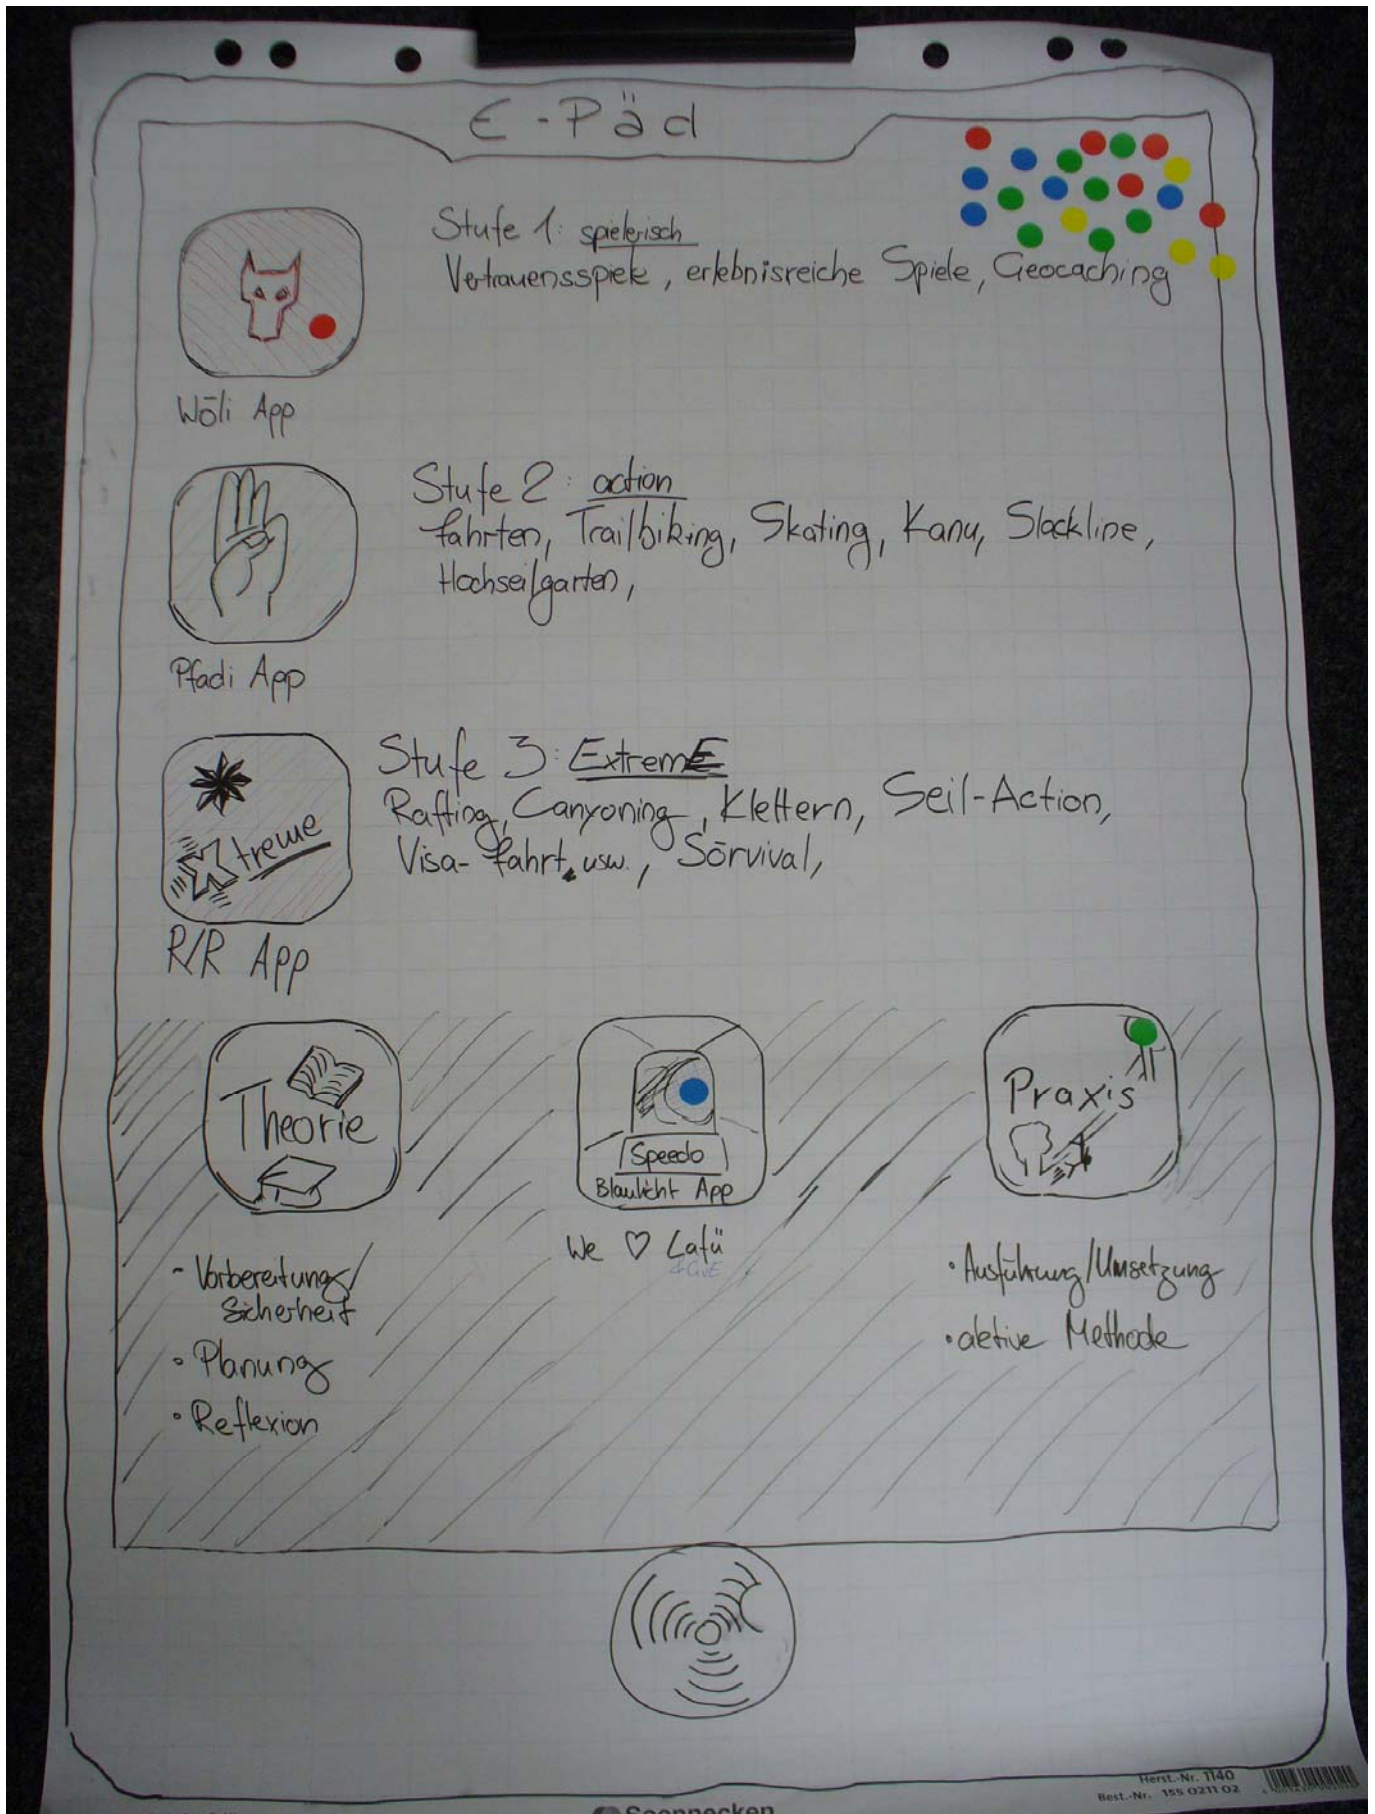 E-Päd
Stufe 1: spielerisch
Vertrauensspiele, erlebnisreiche Spiele, Geocaching
Wōli App
Stufe 2: action
fahrten, Trailbiking, Skating, Kanu, Slackline,
Hochseilgarten,
Pfadi App
Stufe 3: ExtremE
Rafting, Canyoning, Klettern, Seil-Action,
Visa-fahrt usw., Sōrvival,
Xtreme
R/R App
Theorie
- Vorbereitung/
Sicherheit
• Planung
• Reflexion
Speedo
Blaulicht App
We ♡ Lafü
Praxis
• Ausführung/Umsetzung
• aktive Methode
Herst.-Nr. 1140
Best.-Nr. 155 0211 02
Soennecken